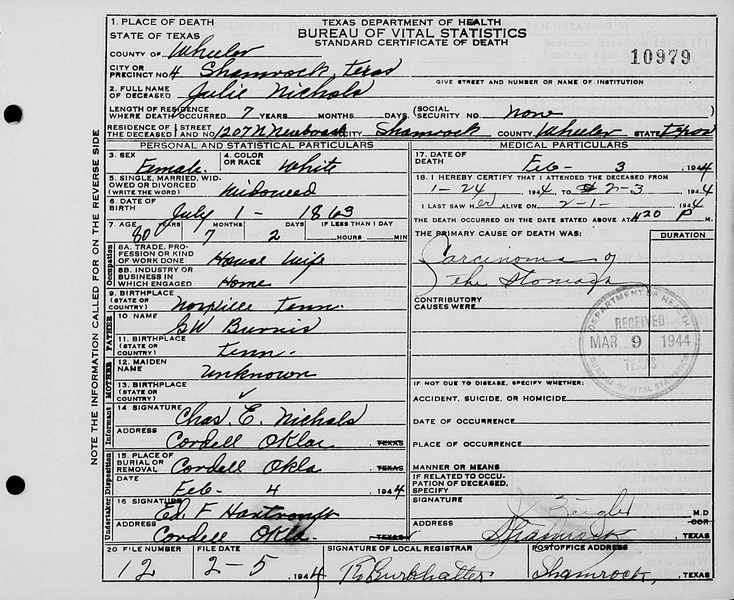 1. PLACE OF DEATH
STATE OF TEXAS
TEXAS DEPARTMENT OF HEALTH
BUREAU OF VITAL STATISTICS
STANDARD CERTIFICATE OF DEATH
COUNTY OF Wheeler
10979
CITY OR PRECINCT NO. 4 Shamrock, Texas
GIVE STREET AND NUMBER OR NAME OF INSTITUTION
2. FULL NAME OF DECEASED Julie Nichols
LENGTH OF RESIDENCE WHERE DEATH OCCURRED 7 YEARS MONTHS DAYS (SOCIAL SECURITY NO. none
RESIDENCE OF THE DECEASED STREET AND NO. 1207 N CITY Shamrock COUNTY Wheeler STATE Texas
PERSONAL AND STATISTICAL PARTICULARS
3. SEX Female 4. COLOR OR RACE White
5. SINGLE, MARRIED, WIDOWED OR DIVORCED (WRITE THE WORD) Widowed
6. DATE OF BIRTH July 1 - 1863
7. AGE YEARS MONTHS DAYS IF LESS THAN 1 DAY
80 7 2 HOURS MIN
Occupation
8A. TRADE, PROFESSION OR KIND OF WORK DONE House Wife
8B. INDUSTRY OR BUSINESS IN WHICH ENGAGED Home
9. BIRTHPLACE (STATE OR COUNTRY) Tenn.
FATHER
10 NAME GW
11. BIRTHPLACE (STATE OR COUNTRY) Tenn -
MOTHER
12. MAIDEN NAME Unknown
13. BIRTHPLACE (STATE OR COUNTRY) ✓
Informant
14 SIGNATURE Chas. E. Nichols
ADDRESS Cordell Okla. TEXAS
Disposition
15. PLACE OF BURIAL OR REMOVAL Cordell Okla TEXAS
DATE Feb - 4 1944
Undertaker
16 SIGNATURE Ed. F
ADDRESS Cordell Okla. TEXAS
MEDICAL PARTICULARS
17. DATE OF DEATH Feb - 3 1944
18. I HEREBY CERTIFY THAT I ATTENDED THE DECEASED FROM
1-24 1944 TO 2-3 1944
I LAST SAW HER ALIVE ON 2-1- 1944
THE DEATH OCCURRED ON THE DATE STATED ABOVE AT 420 P M.
THE PRIMARY CAUSE OF DEATH WAS: DURATION
Carcinoma of
the Stomach
CONTRIBUTORY CAUSES WERE
DEPARTMENT OF HEALTH
RECEIVED
MAR 9 1944
TEXAS
BUREAU OF VITAL STATISTICS
IF NOT DUE TO DISEASE, SPECIFY WHETHER:
ACCIDENT, SUICIDE, OR HOMICIDE
DATE OF OCCURRENCE
PLACE OF OCCURRENCE
MANNER OR MEANS
IF RELATED TO OCCUPATION OF DECEASED, SPECIFY
SIGNATURE J. Zeigler M.D
ADDRESS Shamrock, TEXAS
20 FILE NUMBER FILE DATE SIGNATURE OF LOCAL REGISTRAR POSTOFFICE ADDRESS
12 2-5 1944 Burkhalter Shamrock, TEXAS
NOTE THE INFORMATION CALLED FOR ON THE REVERSE SIDE